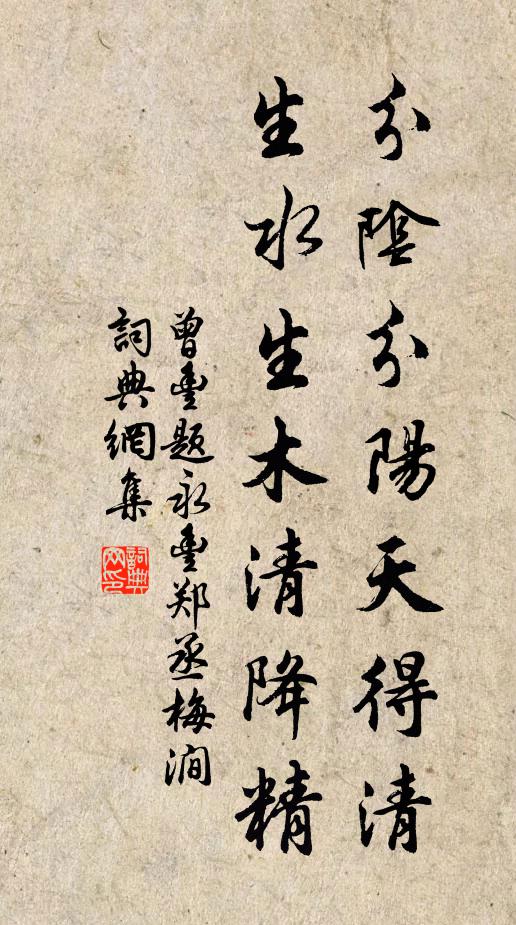 分陰分陽天得清
生水生木清降精
曾豐題永豐郑丞梅澗
詞典網集
詞典网印